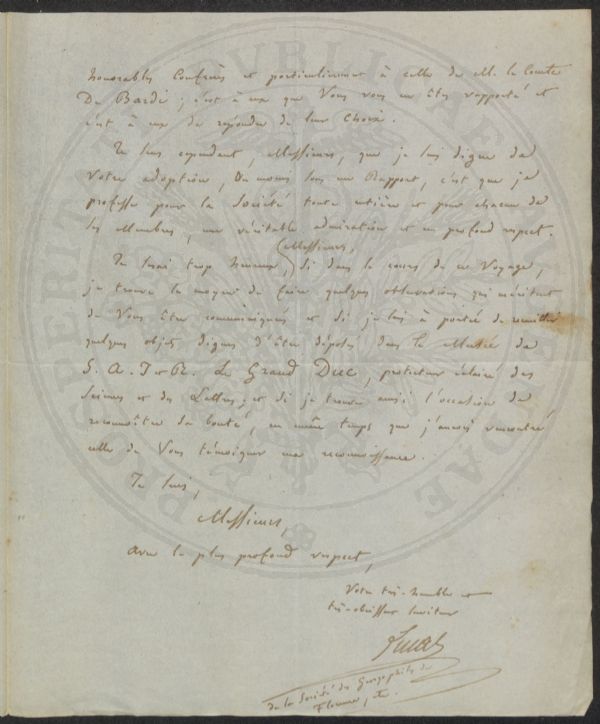 honorables Confrères et particulièrement à celle de M. le Comte
De Bardi ; c'est à eux que Vous vous en êtes rapporté et
c'est à eux de répondre de leur choix.
Je sens cependant, Messieurs, que je suis digne de
Votre adoption, Du moins sous un Rapport, c'est que je
professe pour la Société toute entière et pour chacun de
ses Membres, une véritable admiration et un profond respect.
Je serai trop heureux, Messieurs, si dans le cours de ce Voyage,
je trouve le moyen de faire quelques observations qui méritent
de Vous être communiquées et si je suis à portée de recueillir
quelques objets dignes d'être déposés dans le Musée de
S. A. I. et R. Le Grand Duc, protecteur éclairé des
Sciences et des Lettres ; et si je trouve aussi l'occasion de
reconnoître sa bonté, en même temps que j'aurai rencontré
celle de Vous témoigner ma reconnoissance.
Je suis,
Messieurs,
Avec le plus profond respect,
Votre très-humble et
très-obéissant serviteur
de la Société des Georgophiles de
Florence, etc.
PROSPERITATI PUBLICAE AUGENDAE